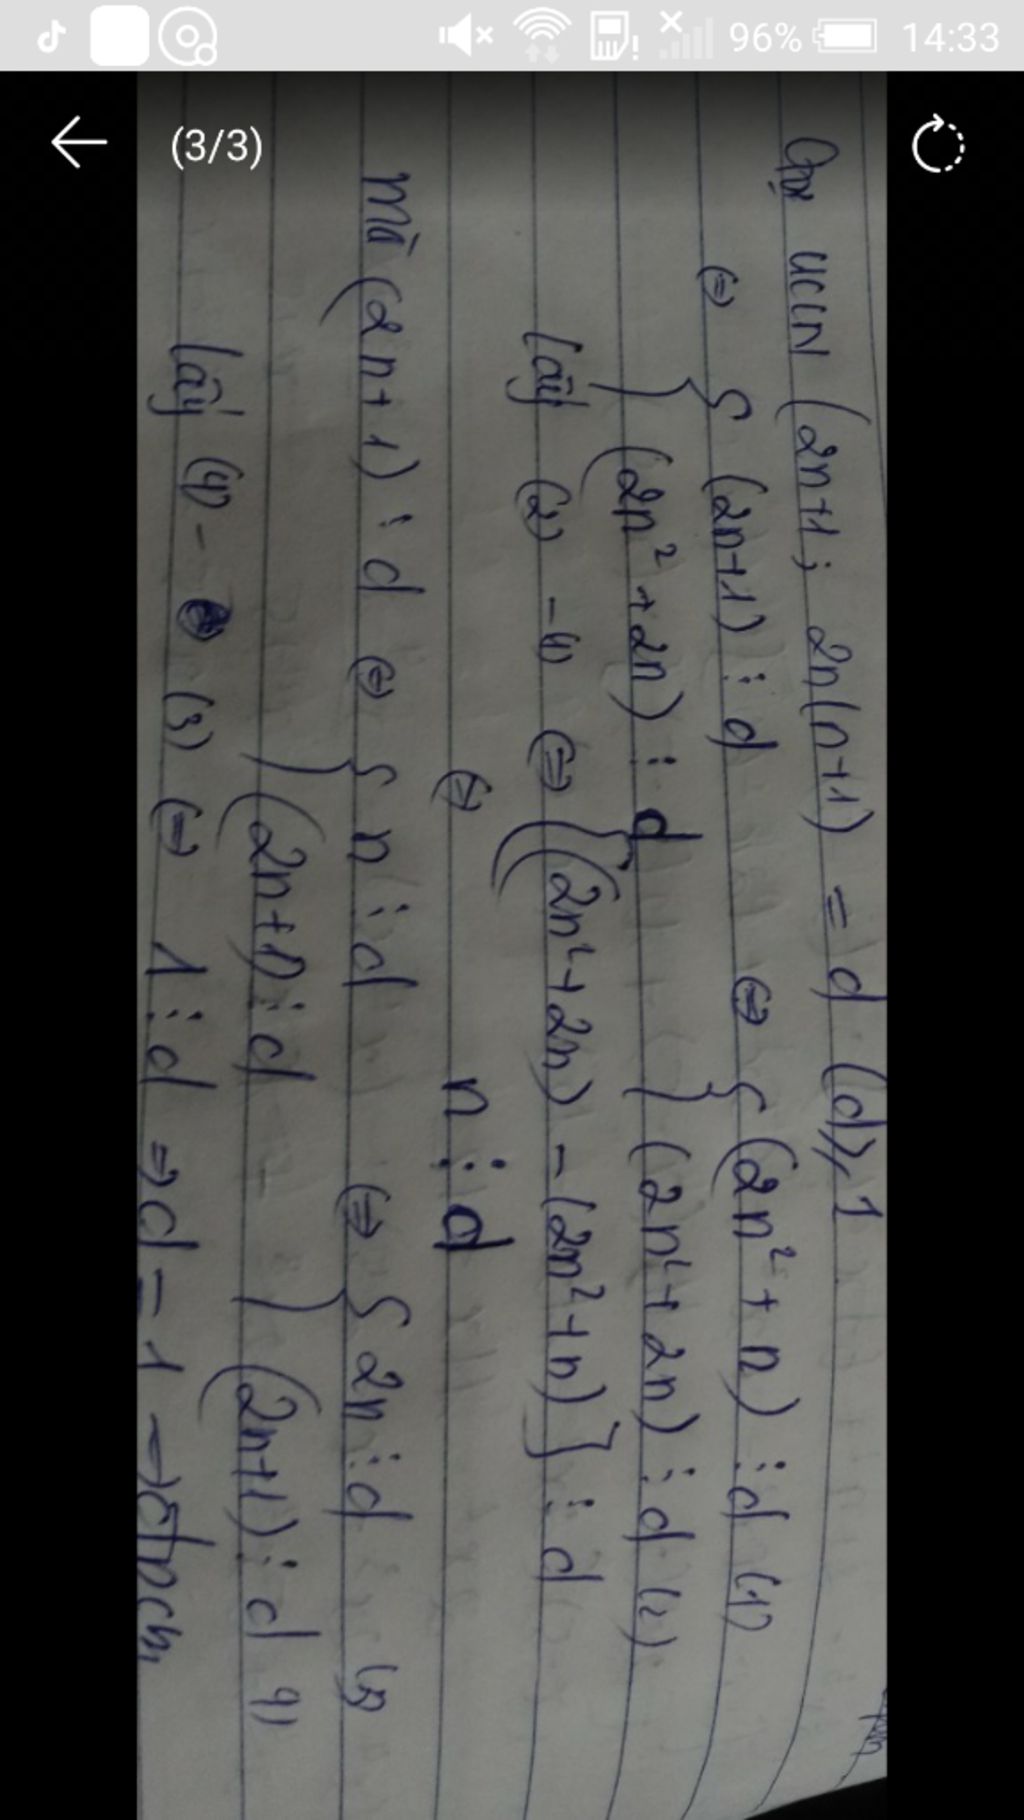 96% 14:33
(3/3)
Gọi ƯCLN (2n+1; 2n(n+1) = d (d≥1
⇔ { (2n+1) ⋮ d ⇔ { (2n²+n) ⋮ d (1)
(2n²+2n) ⋮ d (2n²+2n) ⋮ d (2)
Lấy (2) - (1) ⇔ [(2n²+2n) - (2n²+n)] ⋮ d
⇔ n ⋮ d
mà (2n+1) ⋮ d ⇔ { n ⋮ d ⇔ { 2n ⋮ d (3)
(2n+1) ⋮ d (2n+1) ⋮ d (4)
Lấy (4) - (3) ⇔ 1 ⋮ d ⇒ d = 1 → đpcm